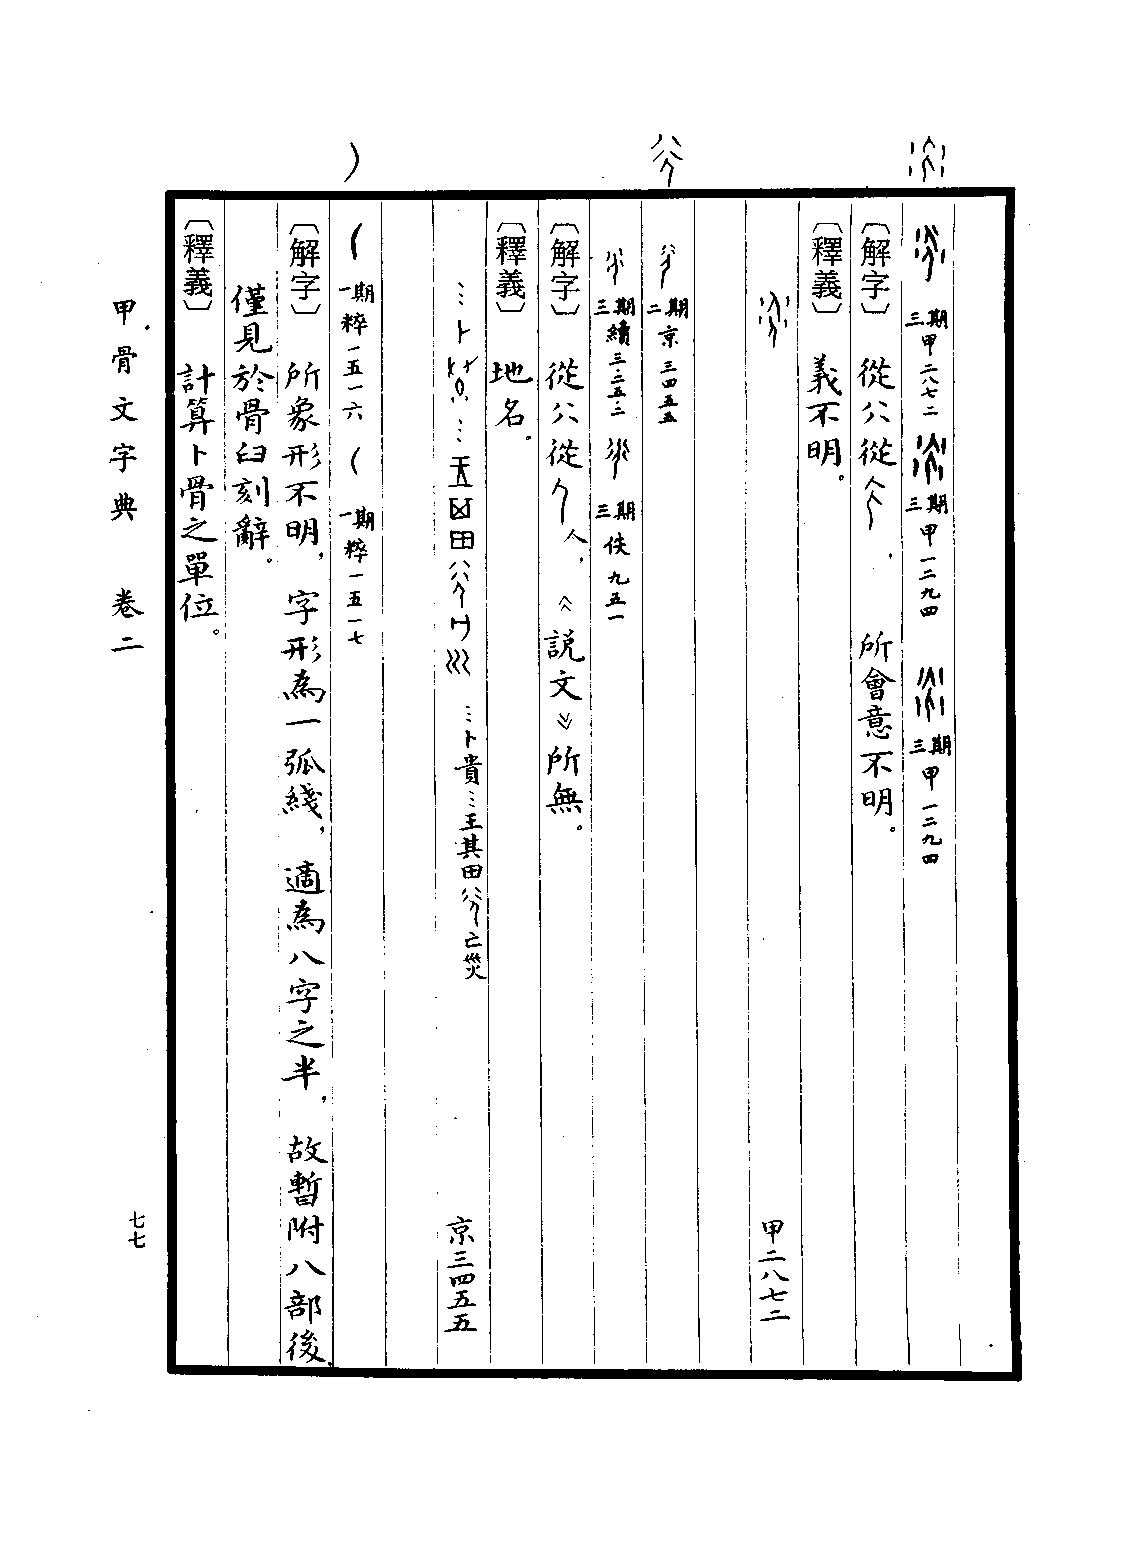 三期甲二八七二 三期甲一二九四 三期甲一二九四
〔解字〕 從八八從,所會意不明。
〔釋義〕 義不明。
甲二八七二
二期京三四五五
三期續三·二五·二 三期佚九五一
〔解字〕 從八八從人,《説文》所無。
〔釋義〕 地名。
…卜 … 王 田 …卜貴…王其田 亡災 京三四五五
一期粹一五一六 一期粹一五一七
〔解字〕 所象形不明,字形為一弧綫,適為八字之半,故暫附八部後。
僅見於骨臼刻辭。
〔釋義〕 計算卜骨之單位。
甲骨文字典 卷二
七七